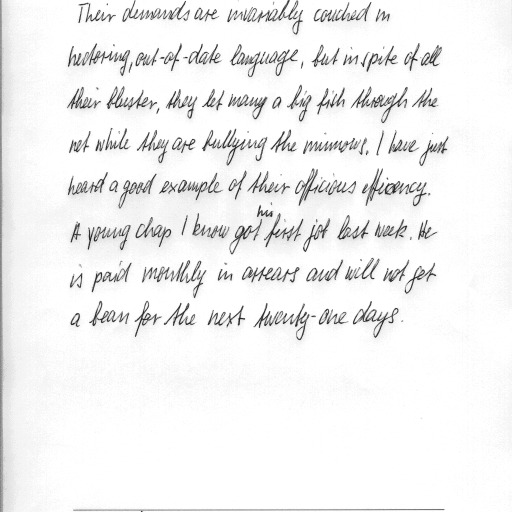 Their demands are invariably couched in
hectoring, out-of-date language, but in spite of all
their bluster, they let many a big fish through the
net while they are bullying the minnows. I have just
heard a good example of their officious efficiency.
A young chap I know got his first job last week. He
is paid monthly in arrears and will not get
a bean for the next twenty-one days.